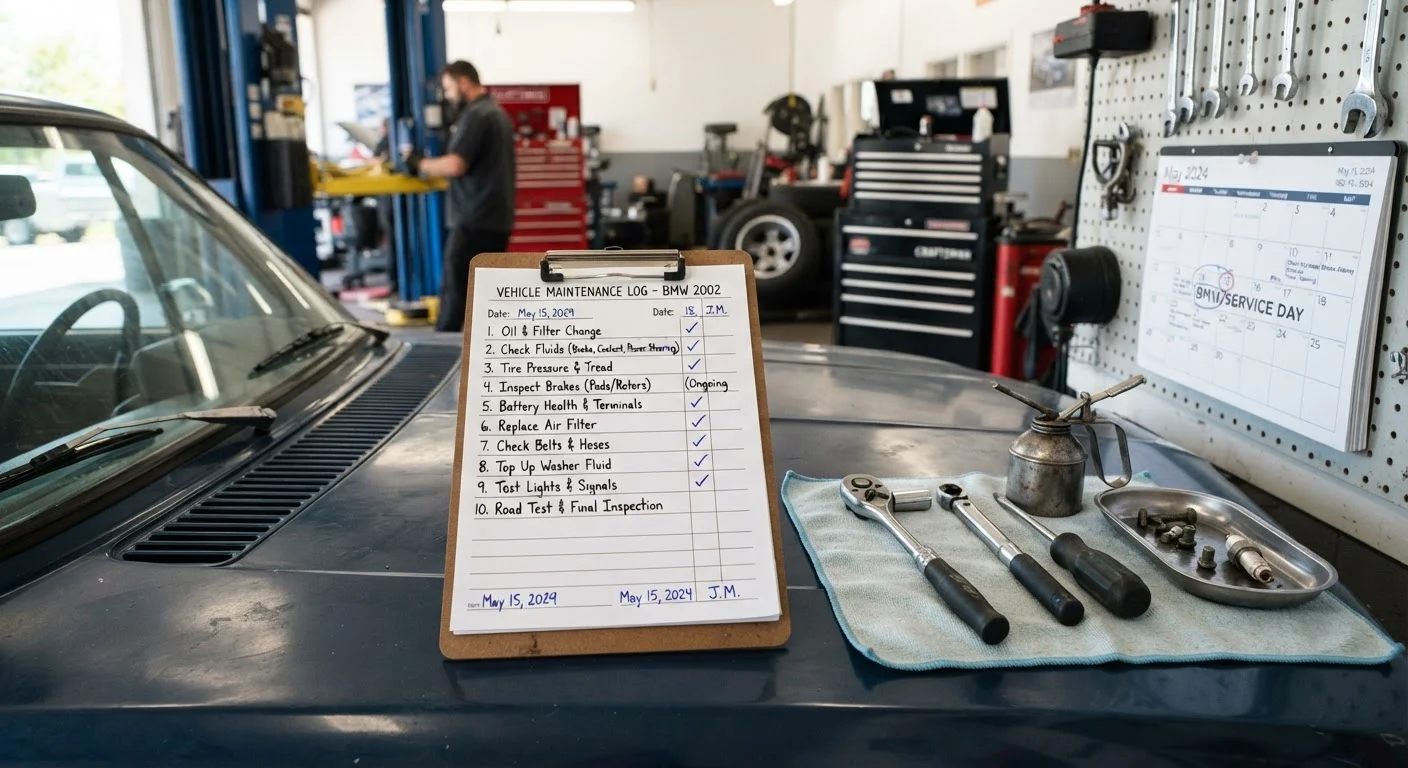 VEHICLE MAINTENANCE LOG - BMW 2002
Date: May 15, 2029 Date: 18, J.M.
1. Oil & Filter Change ✓
2. Check Fluids ✓
3. Tire Pressure & Tread ✓
4. Inspect Brakes (Pads/Rotors) (Ongoing
5. Battery Health & Terminals ✓
6. Replace Air Filter ✓
7. Check Belts & Heses ✓
8. Top Up Washer Fluid ✓
9. Tost Lights & Signals ✓
10. Road Test & Fural Inspection
May 15, 2029 May 15, 2024 J.M.
CRAFTSMAN
May 2024
1 2 3 4
10
BMW SERVICE DAY
17 18
24 25